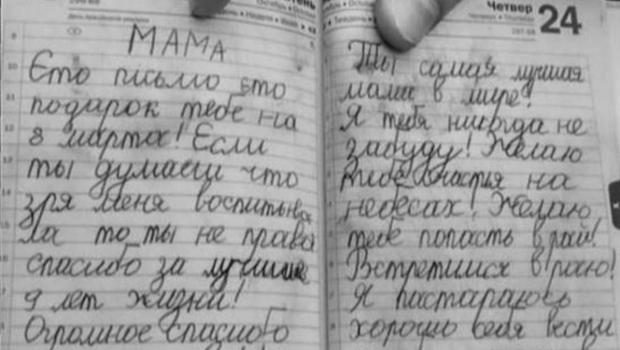 МАМА
Єто письмо єто
подарок тебе на
8 марта! Если
ты думаеш что
зря меня воспитыва
ла то ты не права
спасибо за лучшие
9 лет жизни!
Огромное спасибо
Четвер 24
Ты самая лучшая
мама в мире!
Я тебя никогда не
забуду! Желаю
тибе счастья на
небесах! Желаю
тебе попасть в рай!
Встретимся в раю!
Я пастараюсь
хорошо себя вести